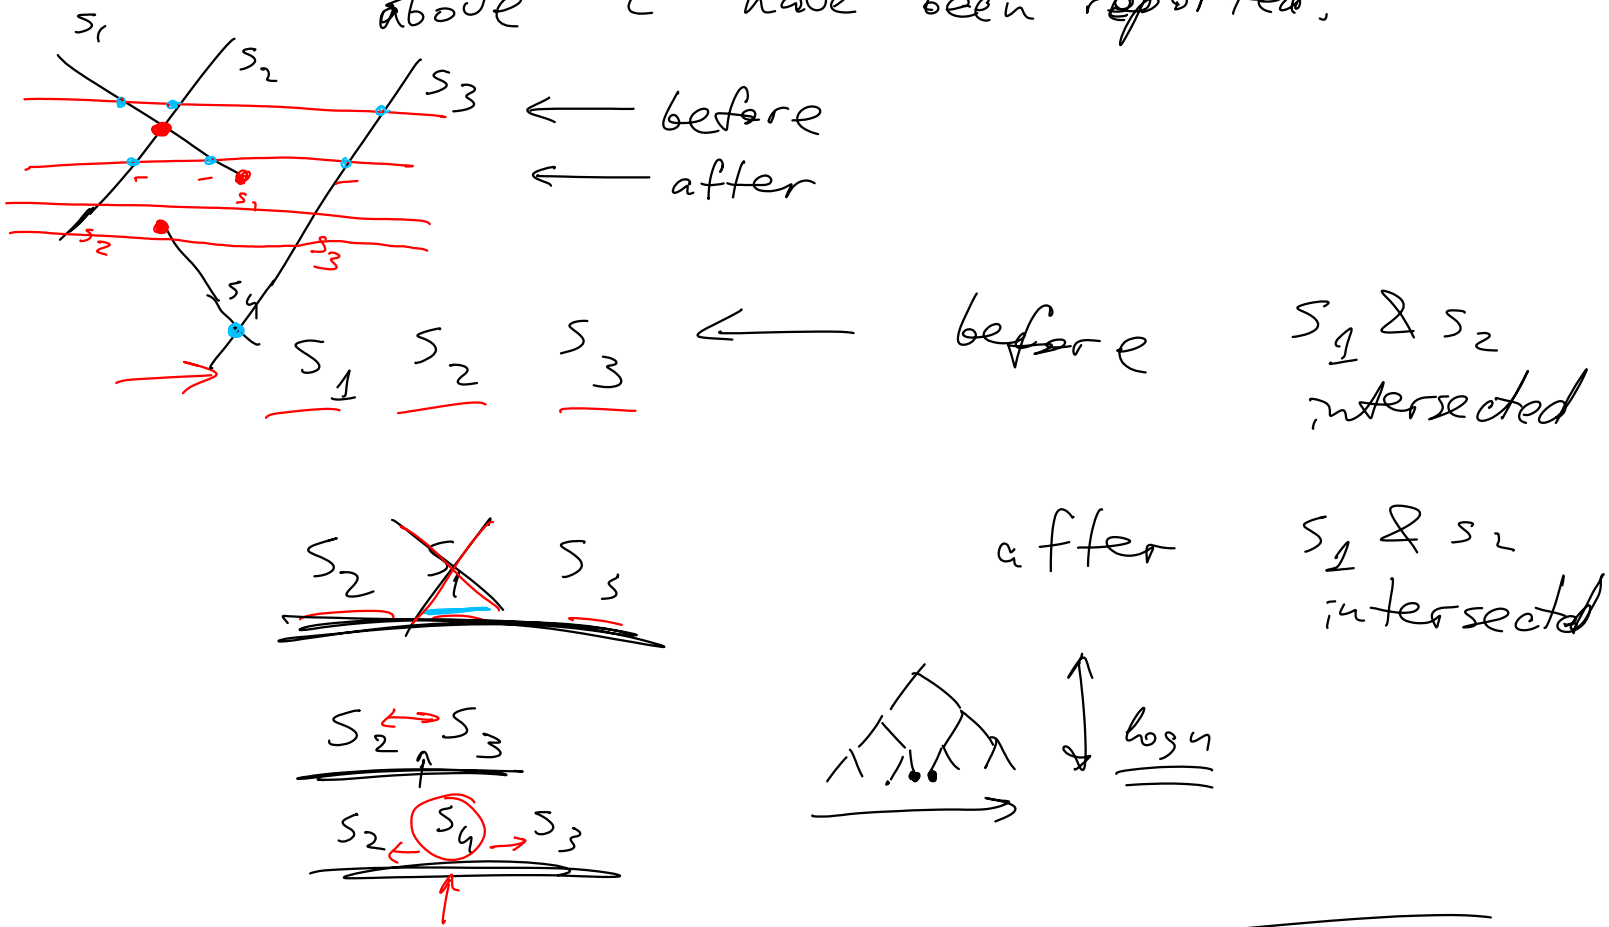 above l have been reported.
S1
S2
S3
before
after
S1
S2
S3
S4
S1 S2 S3
before S1 & S2
intersected
S2 S1 S3
after S1 & S2
intersected
S2 S3
log n
S2 S4 S3